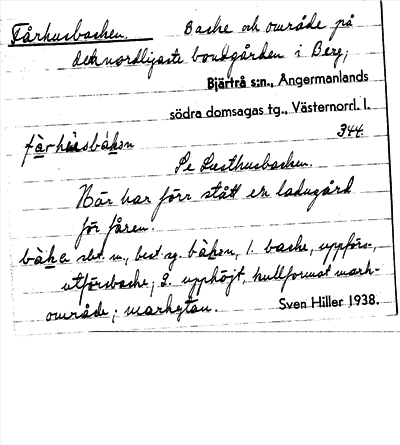 Fårhusbacken. Backe och område på
den nordligaste bondgården i Berg,
Bjärtrå s:n., Ångermanlands
södra domsagas tg., Västernorrl. l.
344.
fårhùsbàkan
Se Lusthusbacken.
Här har förr stått en ladugård
för fåren.
bàka sbt. m., best. sg. bàkan, 1. backe, uppförs-,
utförsbacke; 2. upphöjt, kullformat mark-
område; markytan. Sven Hiller 1938.